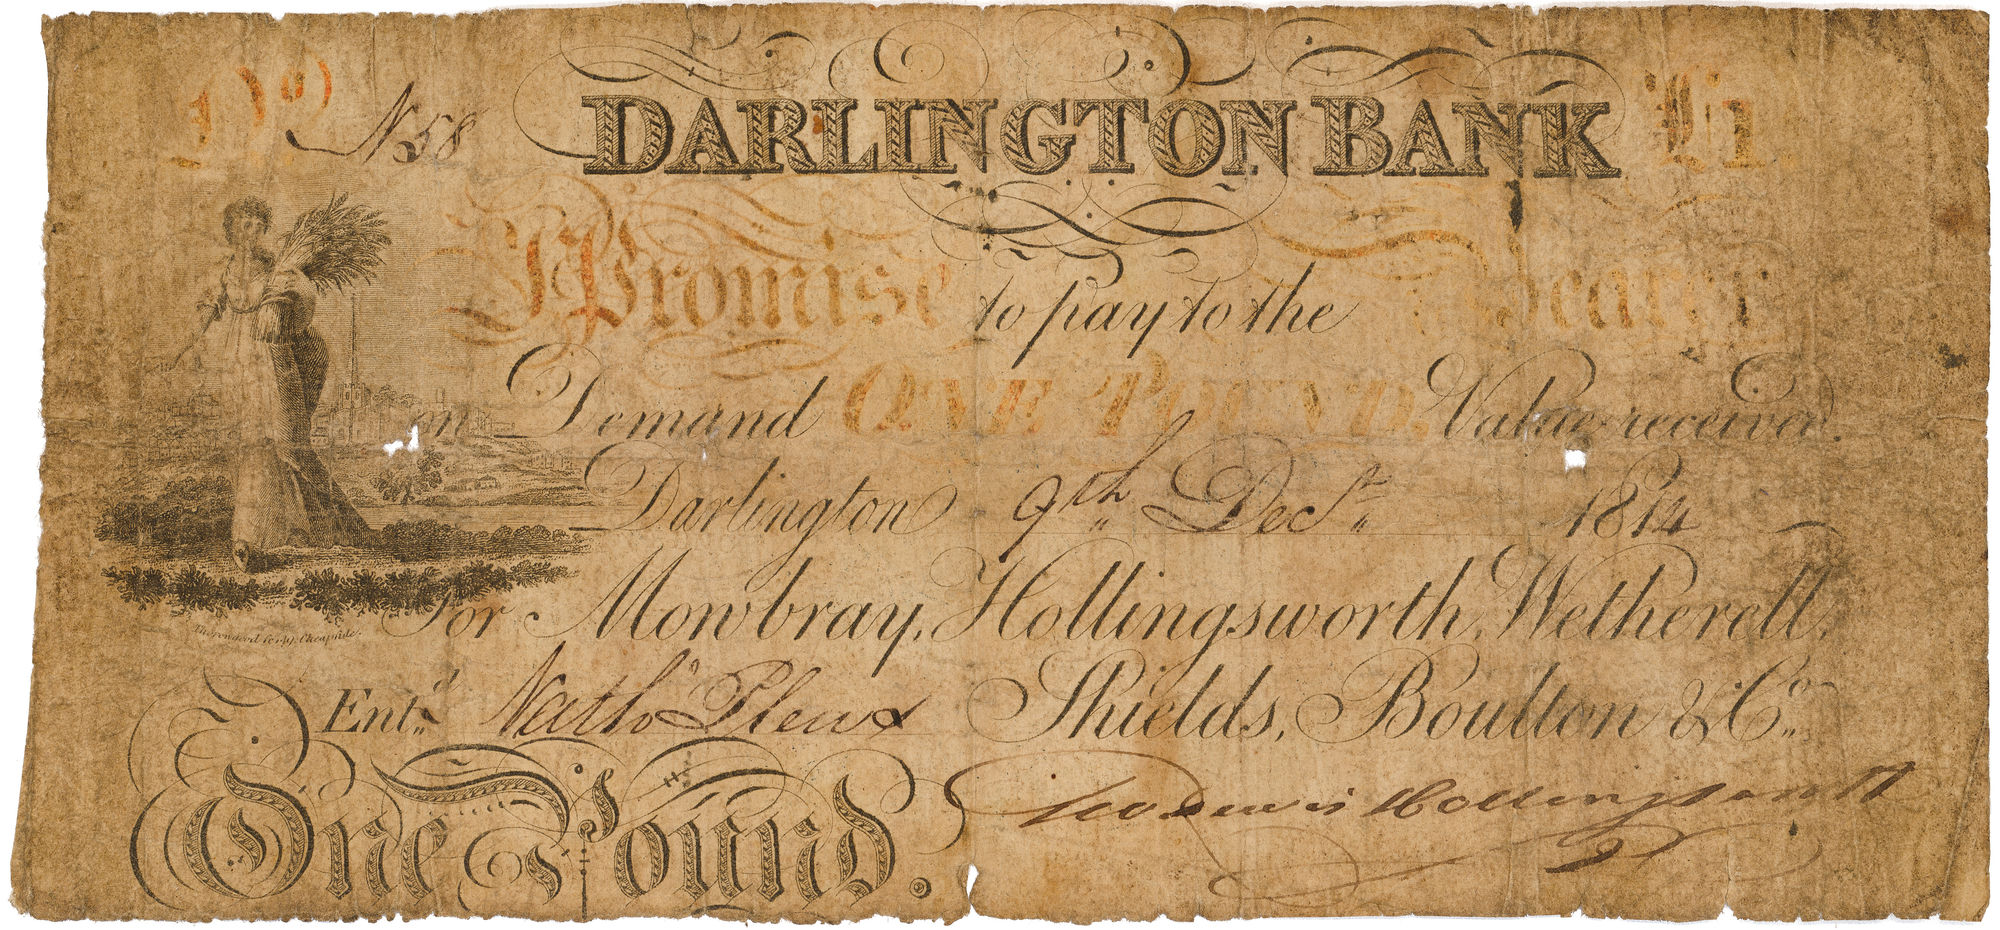 No N58 DARLINGTON BANK
I Promise to pay to the Bearer
on Demand ONE POUND. Value received.
Darlington 9th Decr 1814
For Mowbray, Hollingsworth, Wetherell,
Entd Nathl Plews Shields, Boulton & Co
One Pound.
Lewis Hollingsworth